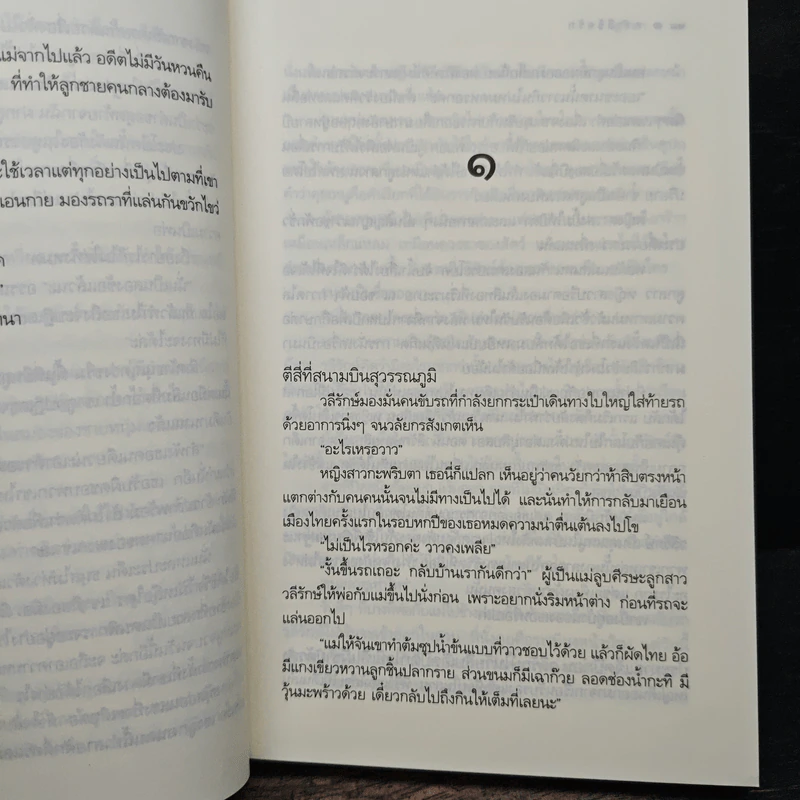 แม่จากไปแล้ว อดีตไม่มีวันหวนคืน
ที่ทำให้ลูกชายคนกลางต้องมารับ
ใช้เวลาแต่ทุกอย่างเป็นไปตามที่เขา
เอนกาย มองรถราที่แล่นกันขวักไขว่
๑
ตีสี่ที่สนามบินสุวรรณภูมิ
วลีรักษ์มองมั่นคนขับรถที่กำลังยกกระเป๋าเดินทางใบใหญ่ใส่ท้ายรถ
ด้วยอาการนิ่งๆ จนวลัยกรสังเกตเห็น
“อะไรเหรอวาว”
หญิงสาวกะพริบตา เธอนี่ก็แปลก เห็นอยู่ว่าคนวัยกว่าห้าสิบตรงหน้า
แตกต่างกับคนคนนั้นจนไม่มีทางเป็นไปได้ และนั่นทำให้การกลับมาเยือน
เมืองไทยครั้งแรกในรอบหกปีของเธอหมดความน่าตื่นเต้นลงไปโข
“ไม่เป็นไรหรอกค่ะ วาวคงเพลีย”
“งั้นขึ้นรถเถอะ กลับบ้านเรากันดีกว่า” ผู้เป็นแม่ลูบศีรษะลูกสาว
วลีรักษ์ให้พ่อกับแม่ขึ้นไปนั่งก่อน เพราะอยากนั่งริมหน้าต่าง ก่อนที่รถจะ
แล่นออกไป
“แม่ให้จันเขาทำต้มซุปน้ำข้นแบบที่วาวชอบไว้ด้วย แล้วก็ผัดไทย อ้อ
มีแกงเขียวหวานลูกชิ้นปลากราย ส่วนขนมก็มีเฉาก๊วย ลอดช่องน้ำกะทิ มี
วุ้นมะพร้าวด้วย เดี๋ยวกลับไปถึงกินให้เต็มที่เลยนะ”